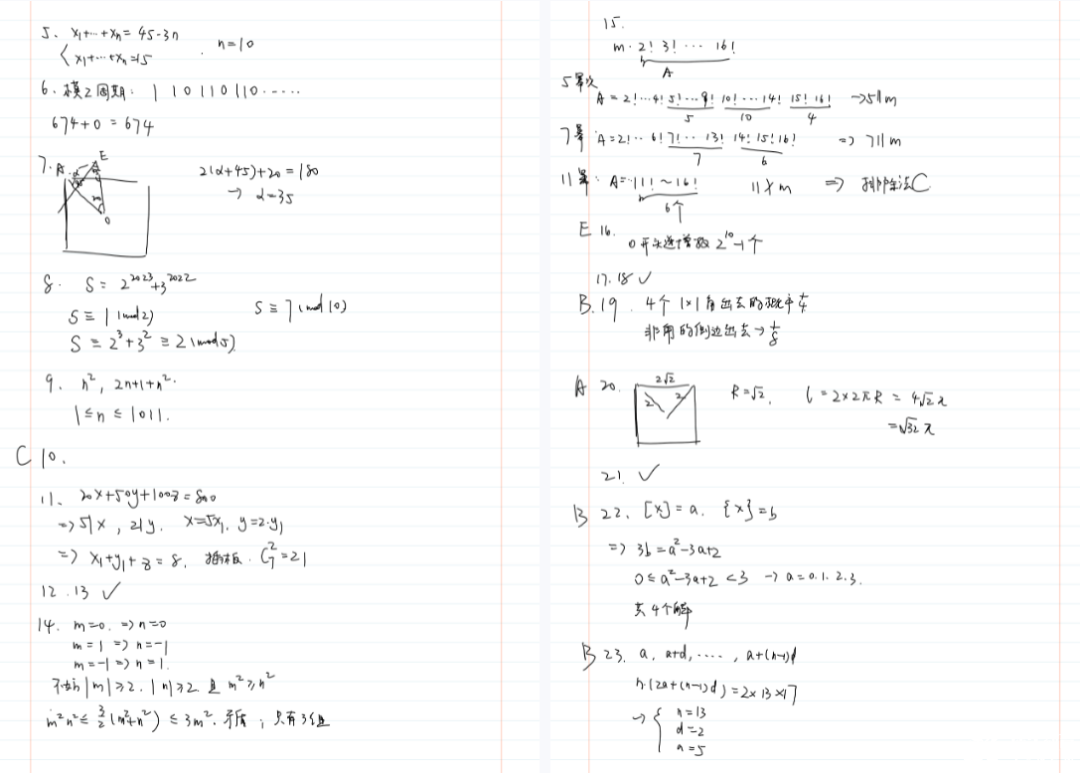 5. x₁+…+xₙ = 45-3n
x₁+…+xₙ=15
n=10
6. 模2周期: 1 1 0 1 1 0 1 1 0……
674+0 = 674
7. A E
O
2(α+45)+20=180
→ α=35
8. S = 2^2023+3^2022
S ≡ 1 (mod 2)
S ≡ 2³+3² ≡ 2 (mod 5)
S ≡ 7 (mod 10)
9. n², 2n+1+n².
1 ≤ n ≤ 1011.
C 10.
11. 20x+50y+100z = 800
=> 5|x, 2|y. x=5x₁, y=2·y₁
=> x₁+y₁+z=8. 插板. C₇²=21
12. 13 ✓
14. m=0. => n=0
m=1 => n=-1
m=-1 => n=1.
不妨 |m|≥2. |n|≥2 且 m²≥n²
m²n² ≤ 3/2(m²+n²) ≤ 3m². 矛盾; 只有3组
15.
m· 2! 3! ··· 16!
A
5幂次
A = 2!…4! 5!…9! 10!…14! 15! 16! → 5||m
5 10 4
7幂 A=2!… 6! 7!… 13! 14! 15! 16! => 7||m
7 6
11幂: A=…11!~16! 11∤m => 排除法C
6个
E 16.
0开头递增数 2^10-1个
17. 18 ✓
B. 19. 4个 1×1 角出去的概率 1/4
非角的侧边出去→1/8
A 20. 2√2
2 2
R=√2. l = 2×2πR = 4√2π
=√32 π
21. ✓
B 22. [x]=a. {x}=b
=> 3b = a²-3a+2
0 ≤ a²-3a+2 <3 → a=0.1.2.3.
共4个解
B 23. a, a+d, ····, a+(n-1)d
n·(2a+(n-1)d)=2×13×17
→ { n=13
d=2
a=5